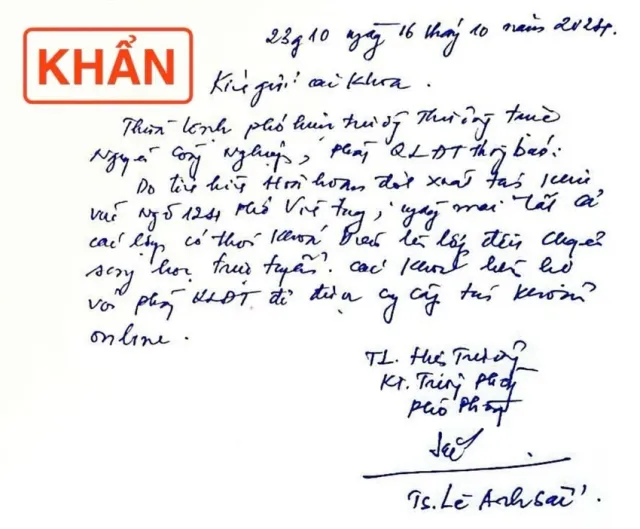 KHẨN
23g10 ngày 16 tháng 10 năm 2024.
Kính gửi các Khoa.
Thừa lệnh phó hiệu trưởng thường trực
Nguyễn Công Nghiệp, phòng QLĐT thông báo:
Do tình hình hỏa hoạn đột xuất tại khu
vực Ngõ 124 phố Vĩnh Tuy, ngày mai tất cả
các lớp có thời khoá biểu lên lớp đều chuyển
sang học trực tuyến. Các Khoa liên hệ
với phòng QLĐT để được cung cấp tài khoản
online.
TL. Hiệu Trưởng
KT. Trưởng Phòng
Phó Phòng
Ts. Lê Anh